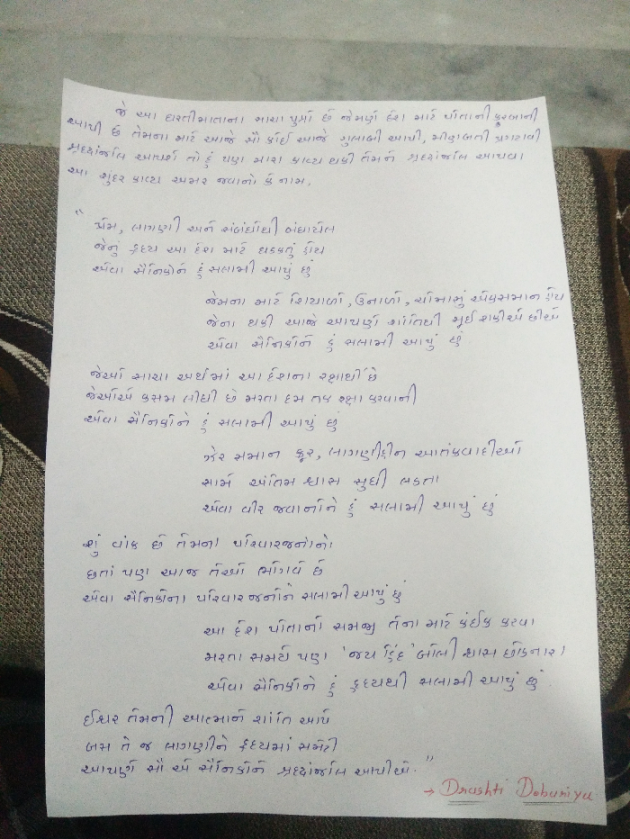 જે આ ધરતીમાતાના સાચા પુત્રો છે જેમણે દેશ માટે પોતાની કુરબાની
આપી છે તેમના માટે આજે સૌ કોઈ આજે ગુલાબી આપી, મીણબતી પ્રગટાવી
શ્રદ્ધાંજલિ આપશે તો હું પણ મારા કાવ્ય થકી તેમને શ્રદ્ધાંજલિ આપવા
આ સુંદર કાવ્ય અમર જવાનો કે નામ.
" પ્રેમ, લાગણી અને સંબંધોથી બંધાયેલ
જેનું હ્રદય આ દેશ માટે ધડકતું હોય
એવા સૈનિકોને હું સલામી આપું છું
જેમના માટે શિયાળો, ઉનાળો, ચોમાસું એકસમાન હોય
જેના થકી આજે આપણે શાંતિથી સૂઈ શકીએ છીએ
એવા સૈનિકોને હું સલામી આપું છું
જેઓ સાચા અર્થમાં આ દેશના રક્ષાર્થી છે
જેઓએ કસમ લીધી છે મરતા દમ તક રક્ષા કરવાની
એવા સૈનિકોને હું સલામી આપું છું
ઝેર સમાન ક્રૂર, લાગણીહીન આતંકવાદીઓ
સામે અંતિમ શ્વાસ સુધી લડતા
એવા વીર જવાનોને હું સલામી આપું છું
શું વાંક છે તેમના પરિવારજનોનો
છતાં પણ આજ તેઓ ભોગવે છે
એવા સૈનિકોના પરિવારજનોને સલામી આપું છું
આ દેશ પોતાનો સમજી તેના માટે કંઈક કરવા
મરતા સમયે પણ 'જય હિંદ' બોલી શ્વાસ છોડનારા
એવા સૈનિકોને હું હ્રદયથી સલામી આપું છું.
ઈશ્વર તેમની આત્માને શાંતિ આપે
બસ તે જ લાગણીને હ્રદયમાં સમેટી
આપણે સૌ એ સૈનિકોને શ્રદ્ધાંજલિ આપીએ. "
→ Drashti Dobariya